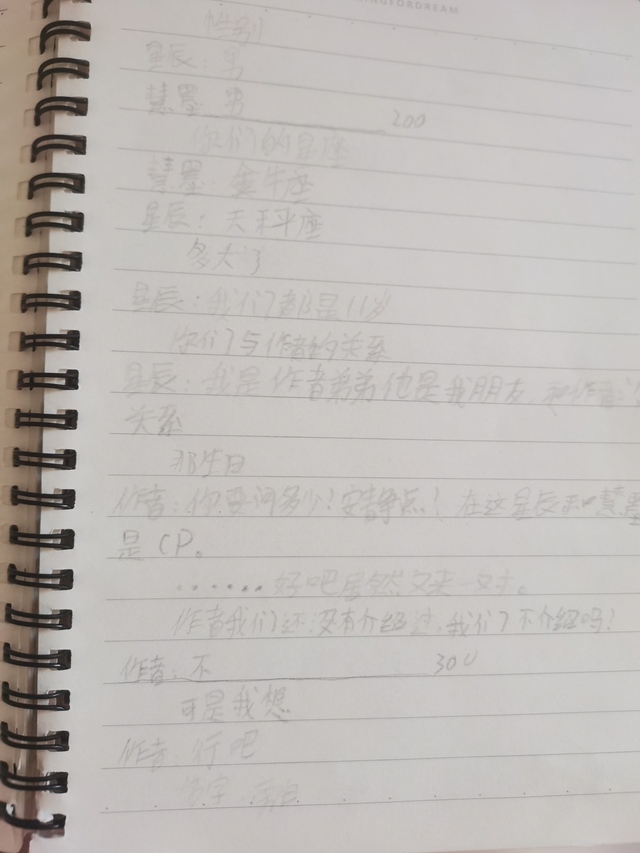 INGFORDREAM
性别
星辰：男
慧墨 男
200
你们的星座
慧墨：金牛座
星辰：天秤座
多大了
星辰：我们都是11岁
你们与作者的关系
星辰：我是作者弟弟他是我朋友 和作者
关系
那生日
作者：你要问多少！安静点！在这星辰和慧墨
是CP。
......好吧虽然又来一对。
作者我们还没有介绍过，我们不介绍吗！
作者：不
300
可是我想
作者：行吧